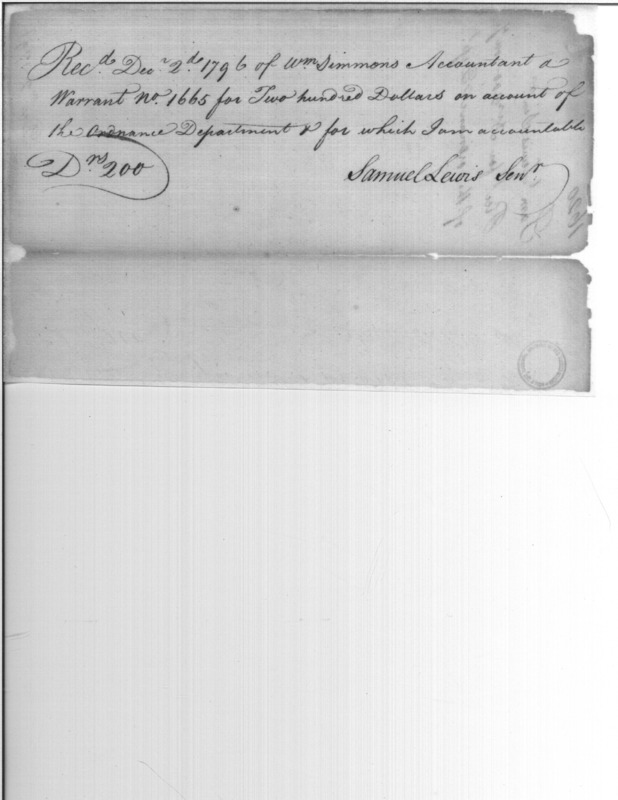 Recd. Decr 2d. 1796 of Wm Simmons Accountant a
Warrant No. 1665 for Two hundred Dollars on account of
the Ordnance Department & for which I am accountable
Drs 200
Samuel Lewis Senr